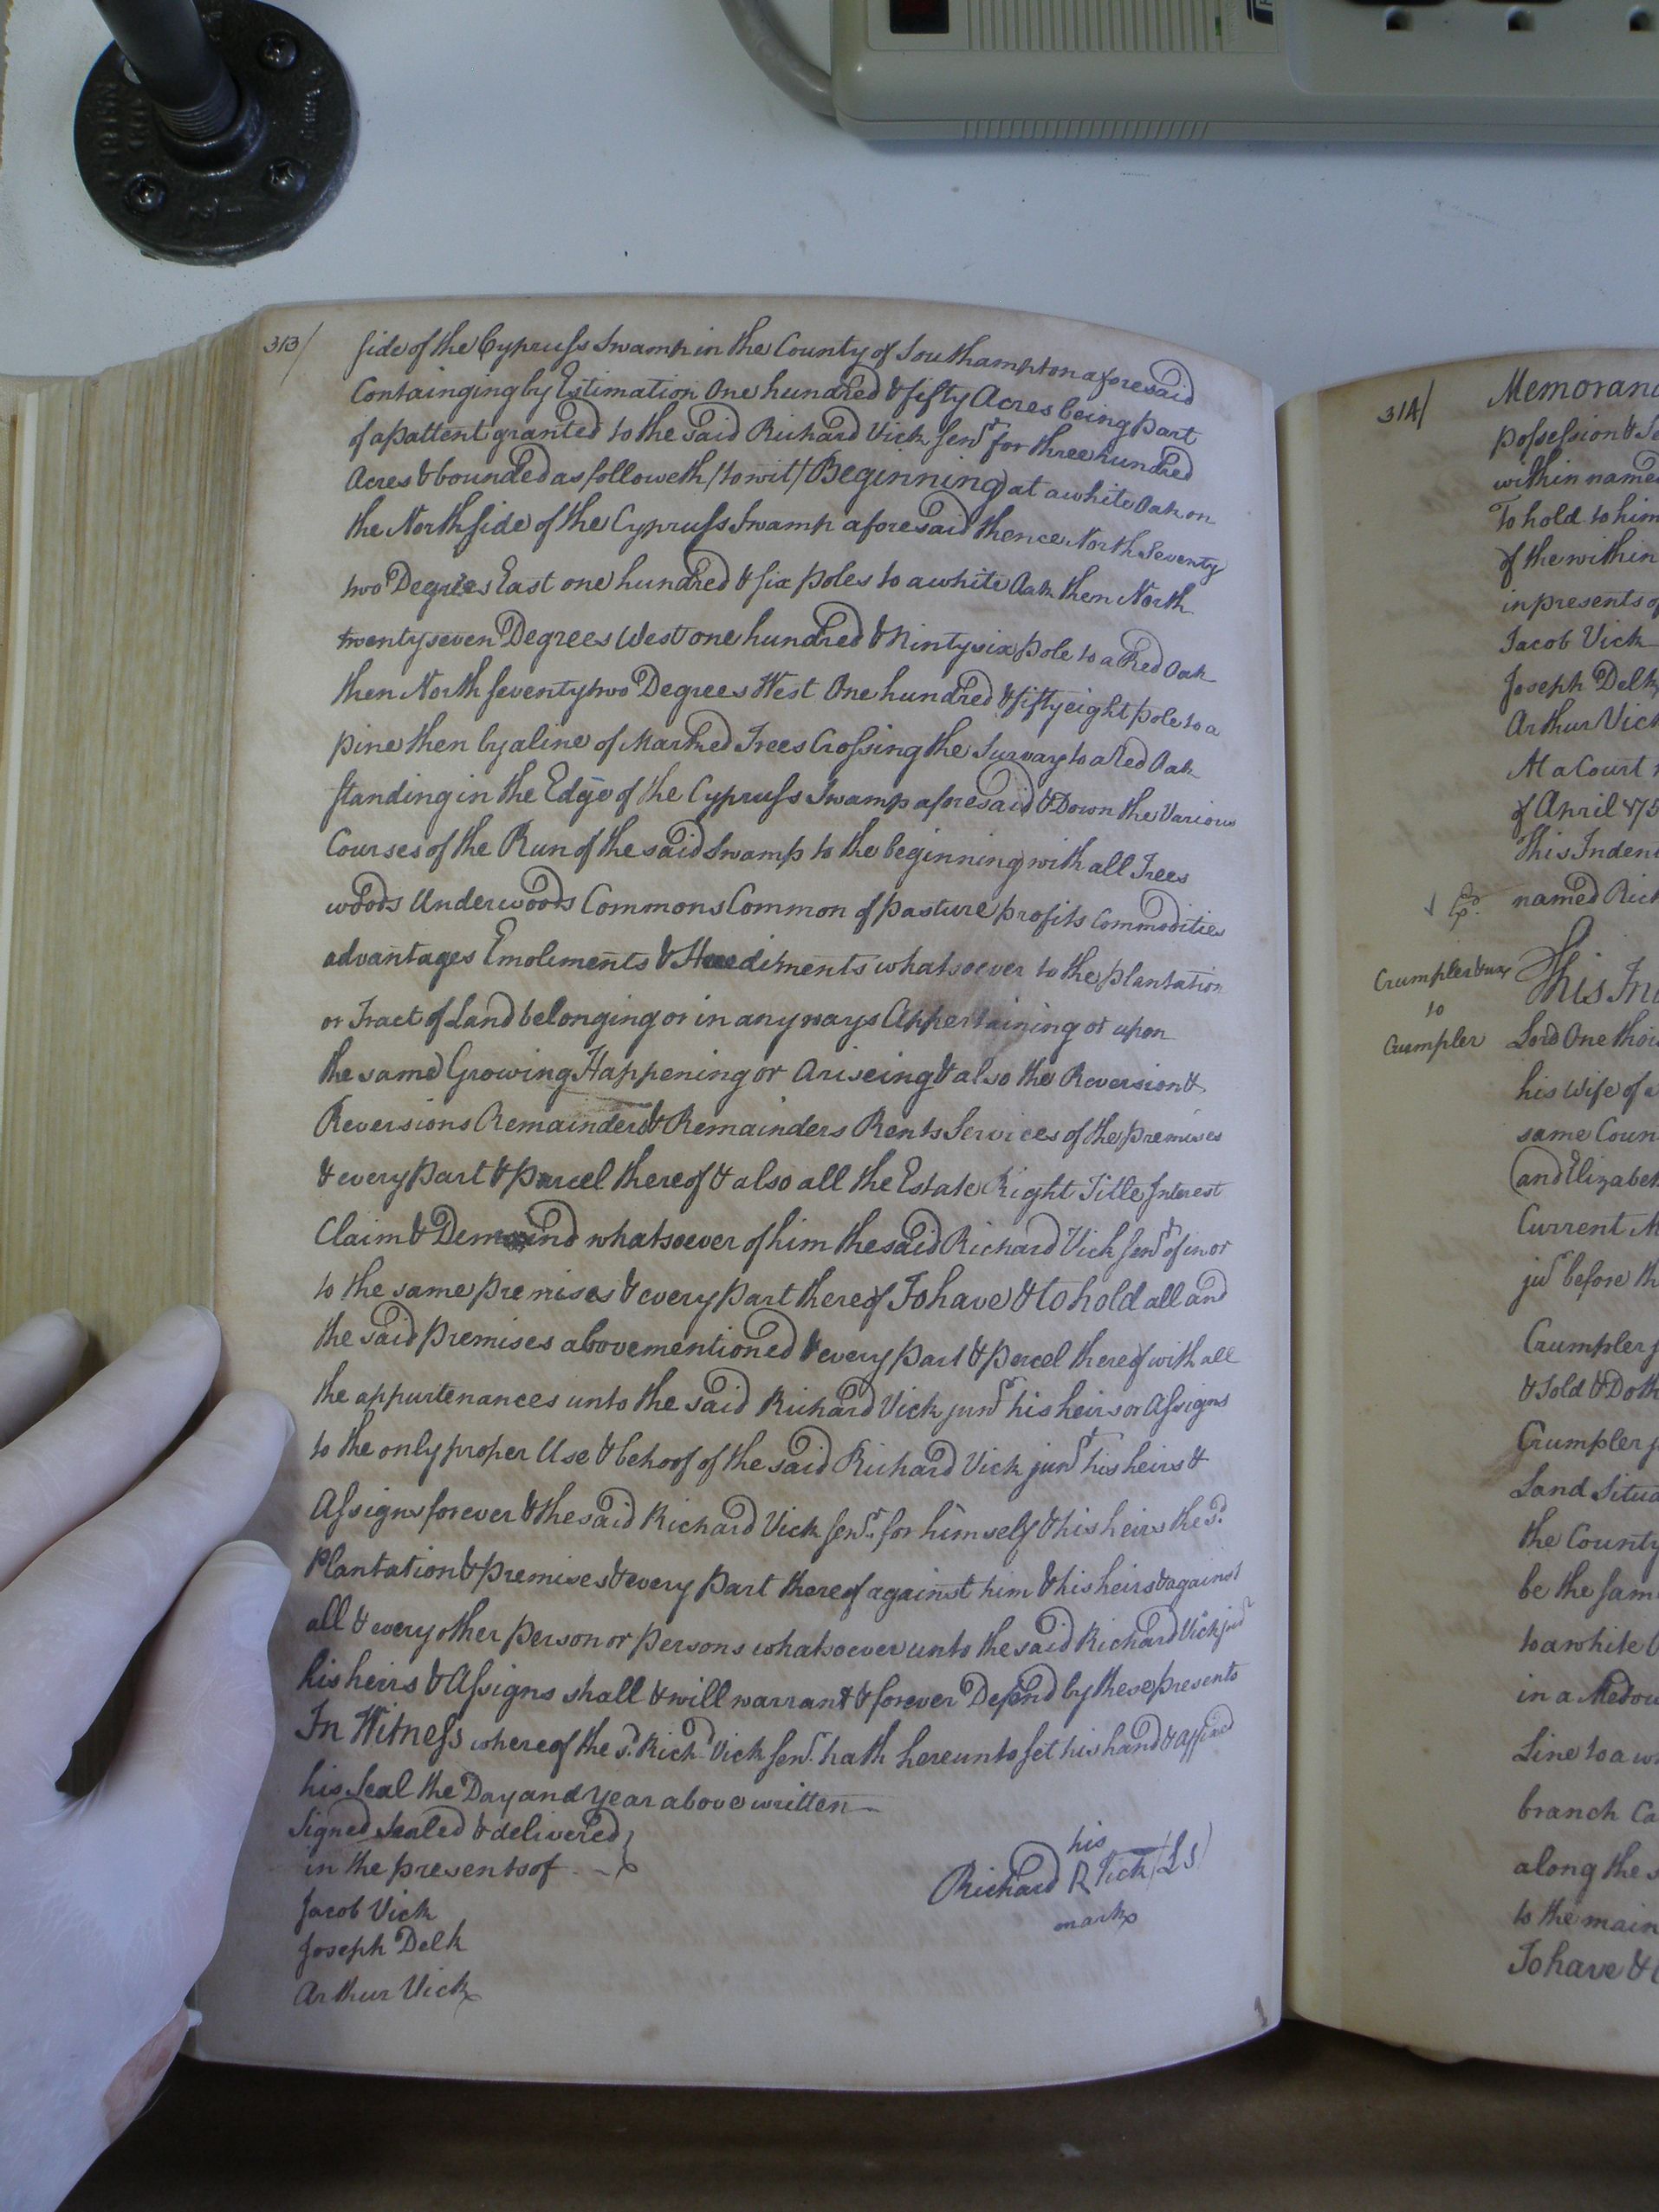 313/
side of the Cypruss Swamp in the County of Southampton aforesaid
Containging by Estimation One hundred & fifty Acres being part
of a pattent granted to the said Richard Vick senr for three hundred
Acres & bounded as followeth /to wit/ Beginning at a white Oak on
the North side of the Cypruss Swamp aforesaid thence North Seventy
two Degrees East one hundred & six poles to a white Oak then North
twenty seven Degrees West one hundred & Ninty six pole to a Red Oak
then North seventy two Degrees West One hundred & fifty eight pole to a
pine then by a line of Marked Trees Crossing the Survay to a Red Oak
standing in the Edge of the Cypruss Swamp aforesaid & Down the Various
Courses of the Run of the said Swamp to the beginning with all Trees
woods Underwoods Commons Common of pasture profits Commodities
advantages Emoliments & Herediments whatsoever to the plantation
or Tract of Land belonging or in any ways Appertaining or upon
the same Growing Happening or Ariseing & also the Reversion &
Reversions Remainder & Remainders Rents Services of the premises
& every part & parcel thereof & also all the Estate Right Title Interest
Claim & Demand whatsoever of him the said Richard Vick senr of in or
to the same premises & every part thereof To have & to hold all and
the said premises above mentioned & every part & parcel thereof with all
the appurtenances unto the said Richard Vick junr his heirs or Assigns
to the only proper Use & behoof of the said Richard Vick junr his heirs &
Assigns forever & the said Richard Vick senr. for himself & his heirs the sd.
Plantation & premises & every part thereof against him & his heirs & against
all & every other person or persons whatsoever unto the said Richard Vick junr
his heirs & Assigns shall & will warrant & forever Defend by these presents
In Witness whereof the sd. Richd. Vick senr. hath hereunto set his hand & affixed
his Seal the Day and Year above written
Signed Sealed & delivered
in the presents of
Jacob Vick
Joseph Delk
Arthur Vick
his
Richard R Vick (LS)
mark
314/
Memoran
possession & Se
within name
To hold to him
of the within
in presents of
Jacob Vick
Joseph Delk
Arthur Vick
At a Court
of April 175
This Inden
named Rich
Crumpler & ux
to
Crumpler
This In
Lord One thou
his Wife of
same Coun
and Elizabet
Current M
jur before th
Crumpler j
& Sold & Doth
Crumpler j
Land Situa
the County
be the sam
to a white O
in a Medow
Line to a w
branch Ca
along the s
to the main
To have &